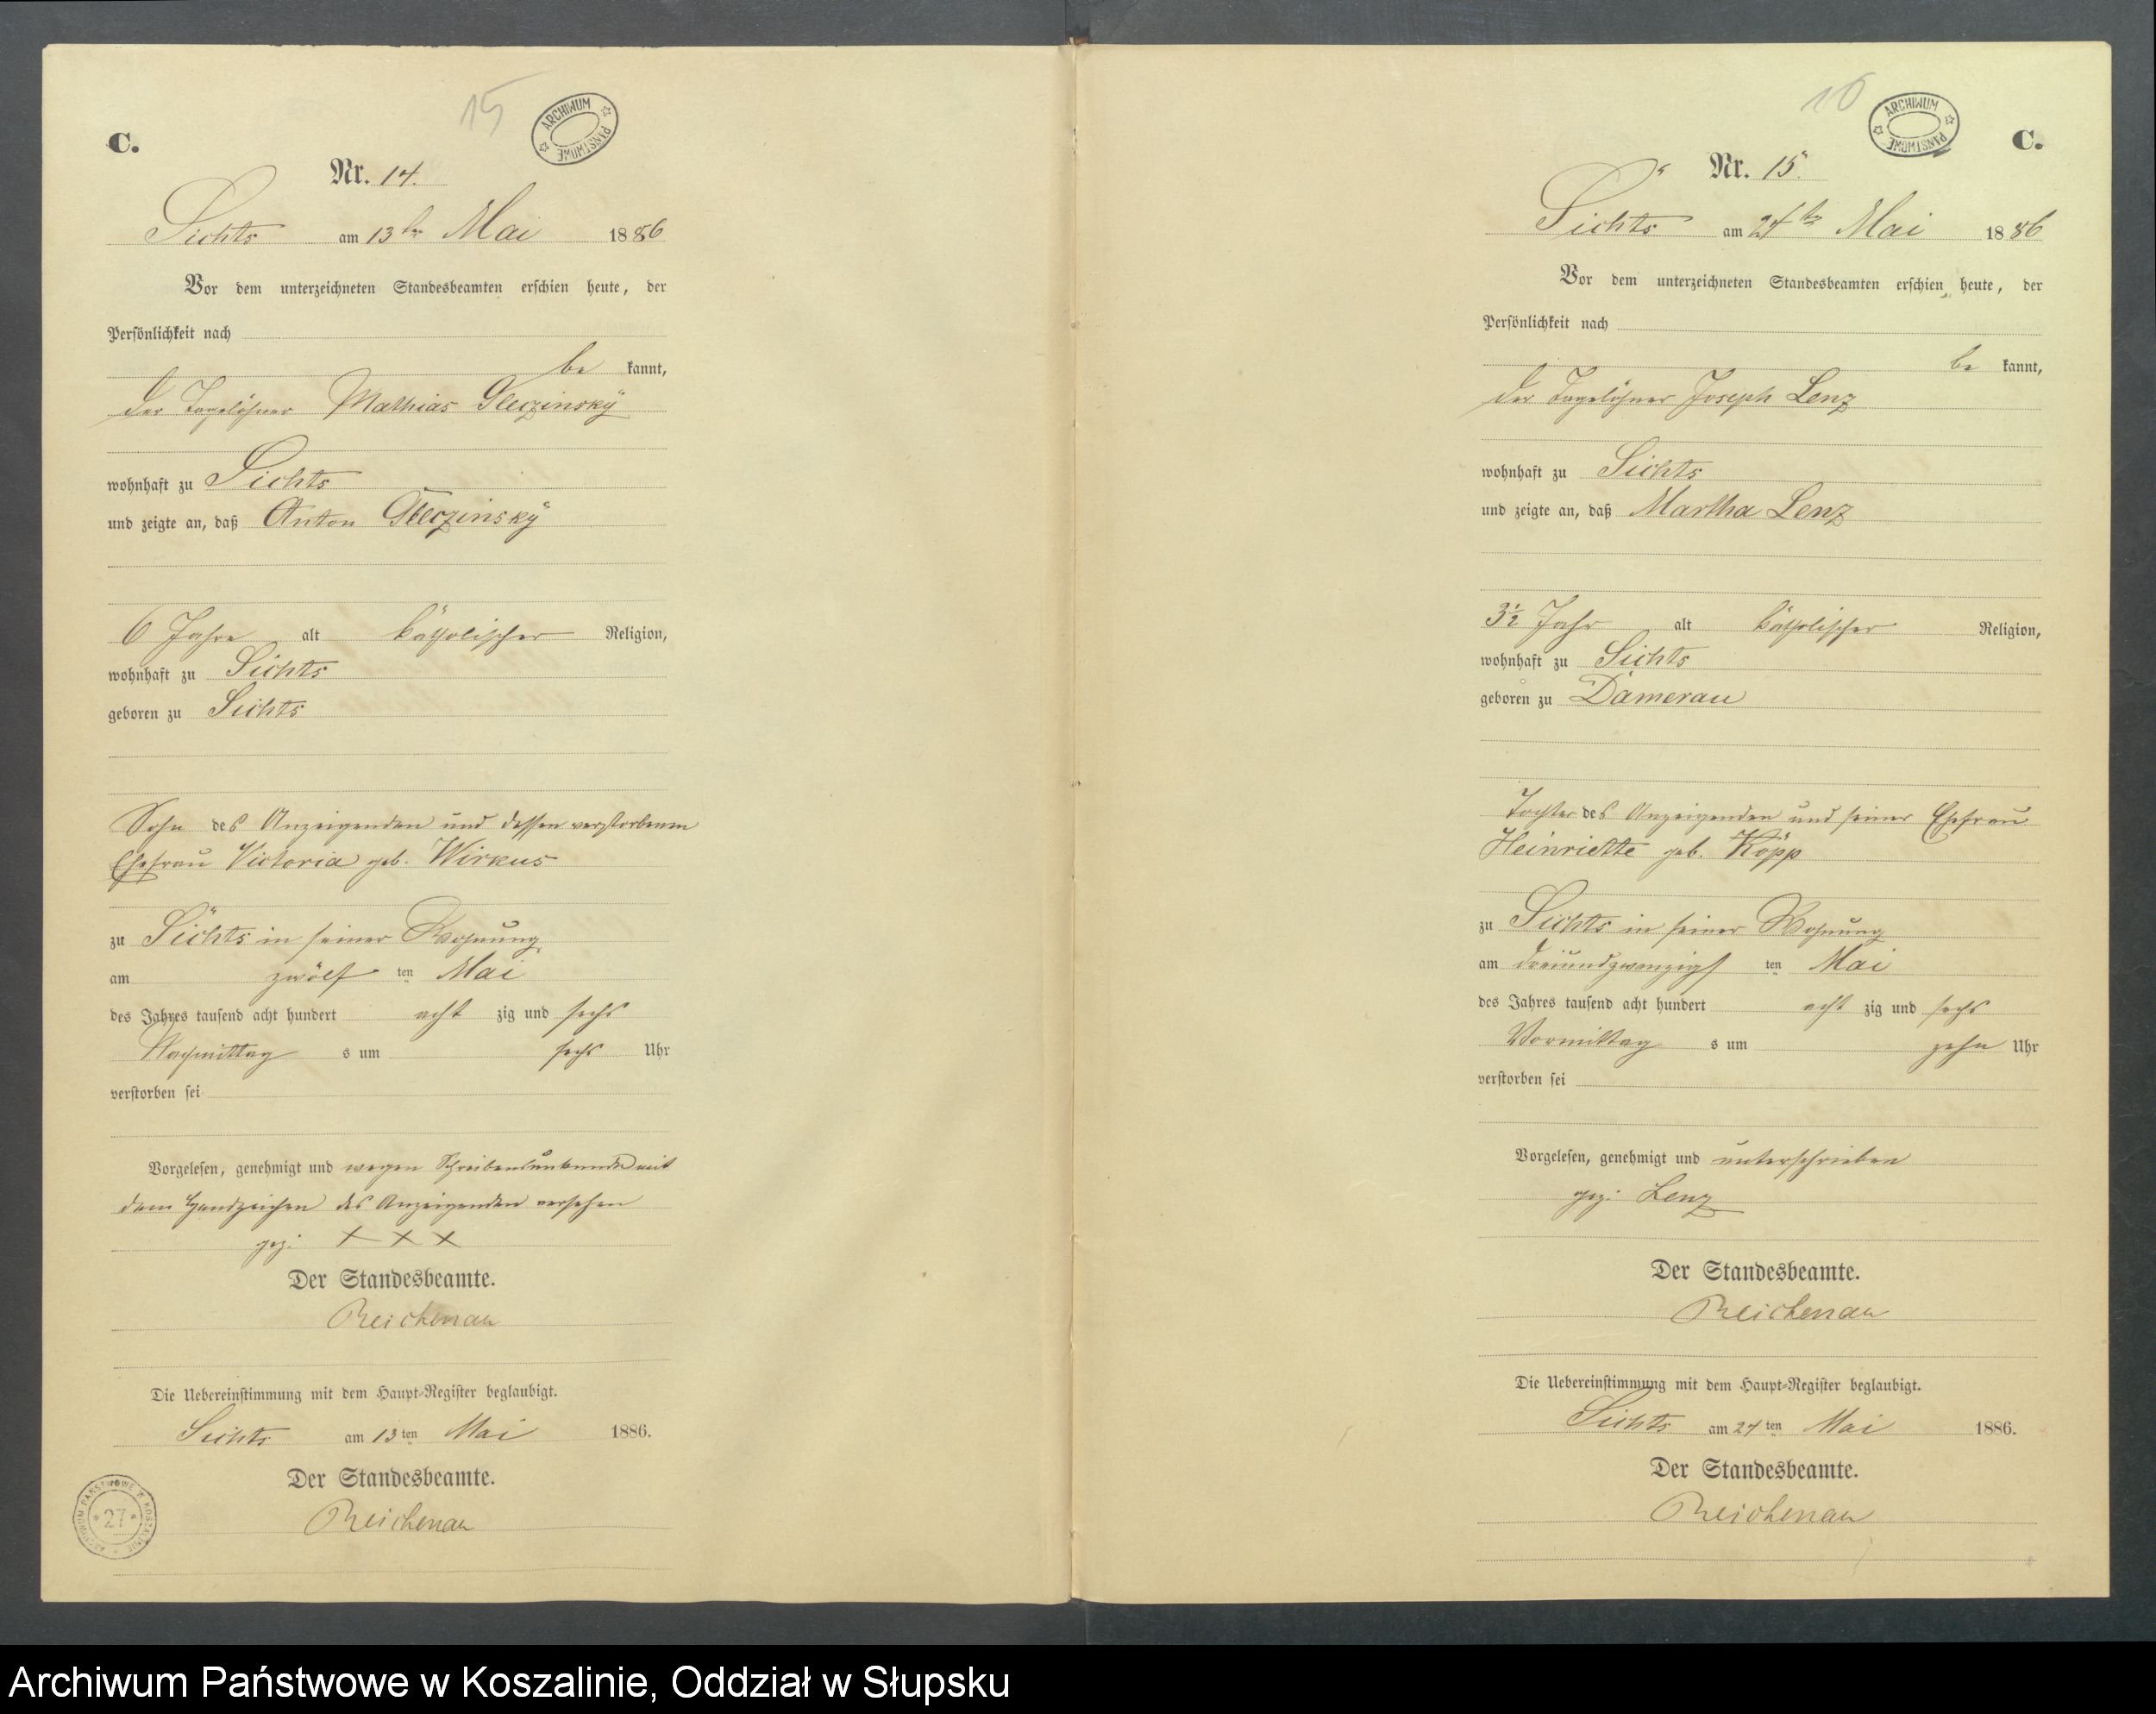 15
ARCHIWUM PAŃSTWOWE
C.
Nr. 14.
Sichts am 13ten Mai 1886
Vor dem unterzeichneten Standesbeamten erschien heute, der
Persönlichkeit nach
be kannt,
der Tagelöhner Mathias
wohnhaft zu Sichts
und zeigte an, daß Anton
6 Jahre alt katholischer Religion,
wohnhaft zu Sichts
geboren zu Sichts
Sohn des Anzeigenden und dessen verstorbenen
Ehefrau Victoria geb. Wirkus
zu Sichts in seiner Wohnung
am zwölf ten Mai
des Jahres tausend acht hundert acht zig und sechs
Nachmittag s um sechs Uhr
verstorben sei
Vorgelesen, genehmigt und wegen Schreibensunkunde mit
dem Handzeichen des Anzeigenden versehen
gez: X X X
Der Standesbeamte.
Reichenau
Die Uebereinstimmung mit dem Haupt-Register beglaubigt.
Sichts am 13 ten Mai 1886.
Der Standesbeamte.
Reichenau
ARCHIWUM PAŃSTWOWE W KOSZALINIE
27
16
ARCHIWUM PAŃSTWOWE
C.
Nr. 15.
Sichts am 24ten Mai 1886
Vor dem unterzeichneten Standesbeamten erschien heute, der
Persönlichkeit nach
be kannt,
der Tagelöhner Joseph Lenz
wohnhaft zu Sichts
und zeigte an, daß Martha Lenz
3½ Jahr alt katholischer Religion,
wohnhaft zu Sichts
geboren zu Damerau
Tochter des Anzeigenden und seiner Ehefrau
Heinriette geb. Köpp
zu Sichts in seiner Wohnung
am dreiundzwanzigs ten Mai
des Jahres tausend acht hundert acht zig und sechs
Vormittag s um zehn Uhr
verstorben sei
Vorgelesen, genehmigt und unterschrieben
gez: Lenz
Der Standesbeamte.
Reichenau
Die Uebereinstimmung mit dem Haupt-Register beglaubigt.
Sichts am 24 ten Mai 1886.
Der Standesbeamte.
Reichenau
Archiwum Państwowe w Koszalinie, Oddział w Słupsku